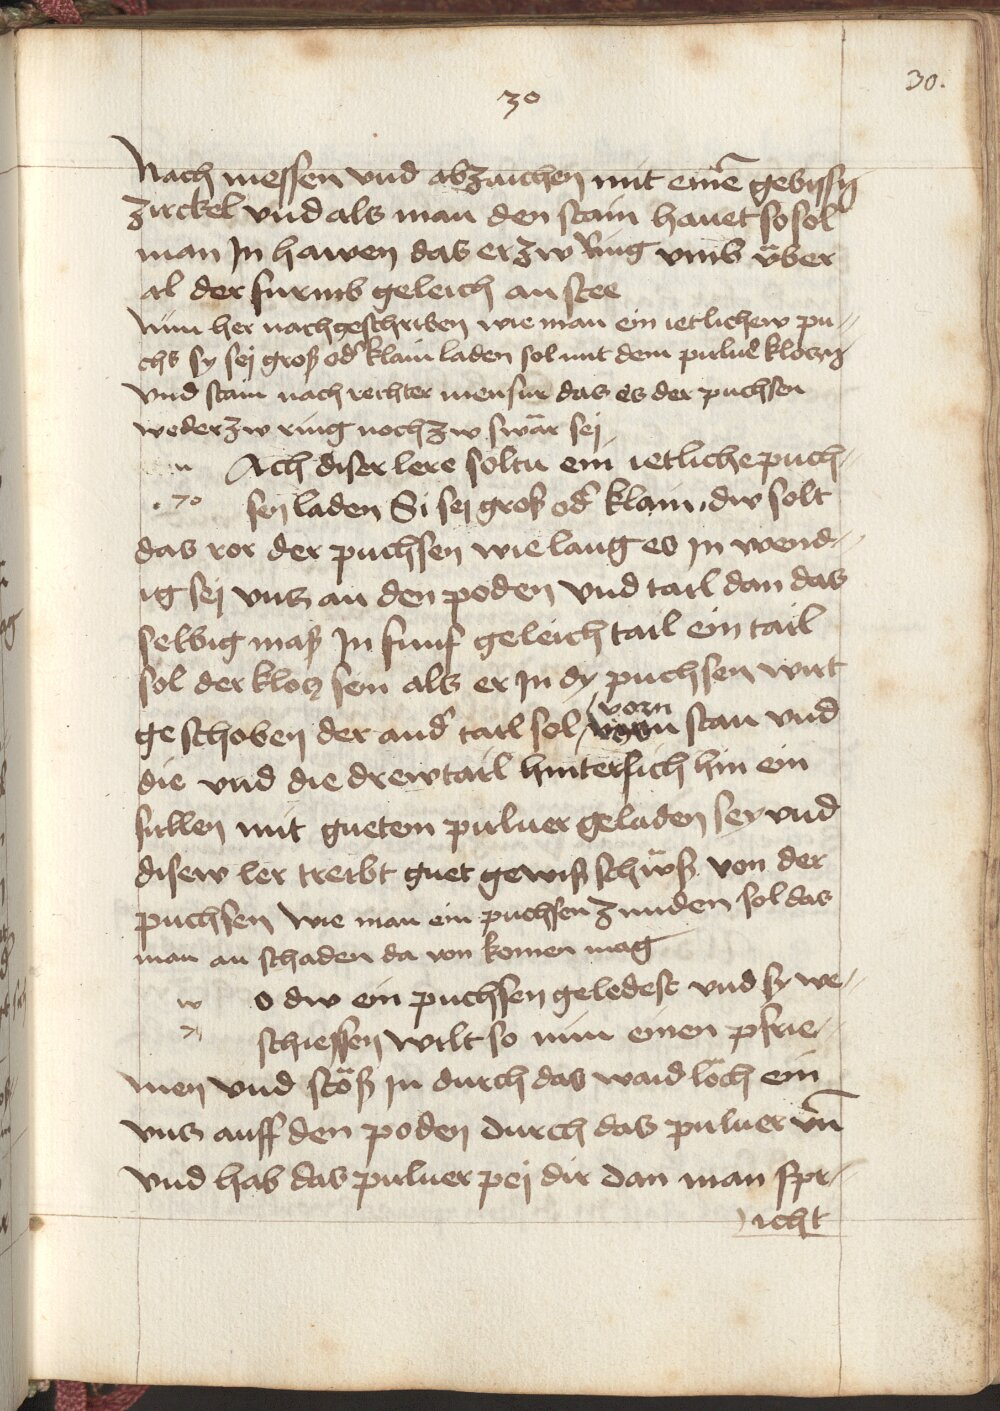 30.
30
Nach messen vnd abzaichen mit eine͂ gewissn
zirckel vnd als man den stain hauet so sol
man In hawen das er zw Ring vmb v̈ber
al der furmb geleich an stee
Nun her nachgeschriben wie man ein ietlichew pu-
chs sy sej groß od' klain laden sol mit dem puluer klotz
vnd stain nach rechter mensur das es der puchsen
weder zw ring noch zw swär sej
n Ach diser lere soltu ein ietliche puch-
.70 sen laden Si sej groß od' klain, dw solt
das ror der puchsen wie lang es In wend-
ig sej vns an den poden vnd tail dan das
selbig maß In funf geleich tail ein tail
sol der klotz sein als er In dy puchsen wirt
vorn
geschoben der and' tail sol stan vnd
die vnd die drew tail hintersich hin ein
sullen mit guetem puluer geladen sey vnd
disew ler treibt guet gewiß schüß von der
puchsen wie man ein puchsen zunden sol das
man an schaden da von komen mag
w o dw ein puchsen geledest vnd sy we-
71 schiessen wilt so nim einen pfrie-
men vnd stöß In durch das waidlöch ein
vns auff den poden durch das puluer vn͂
vnd hab das puluer pej dir dan man spr-
icht